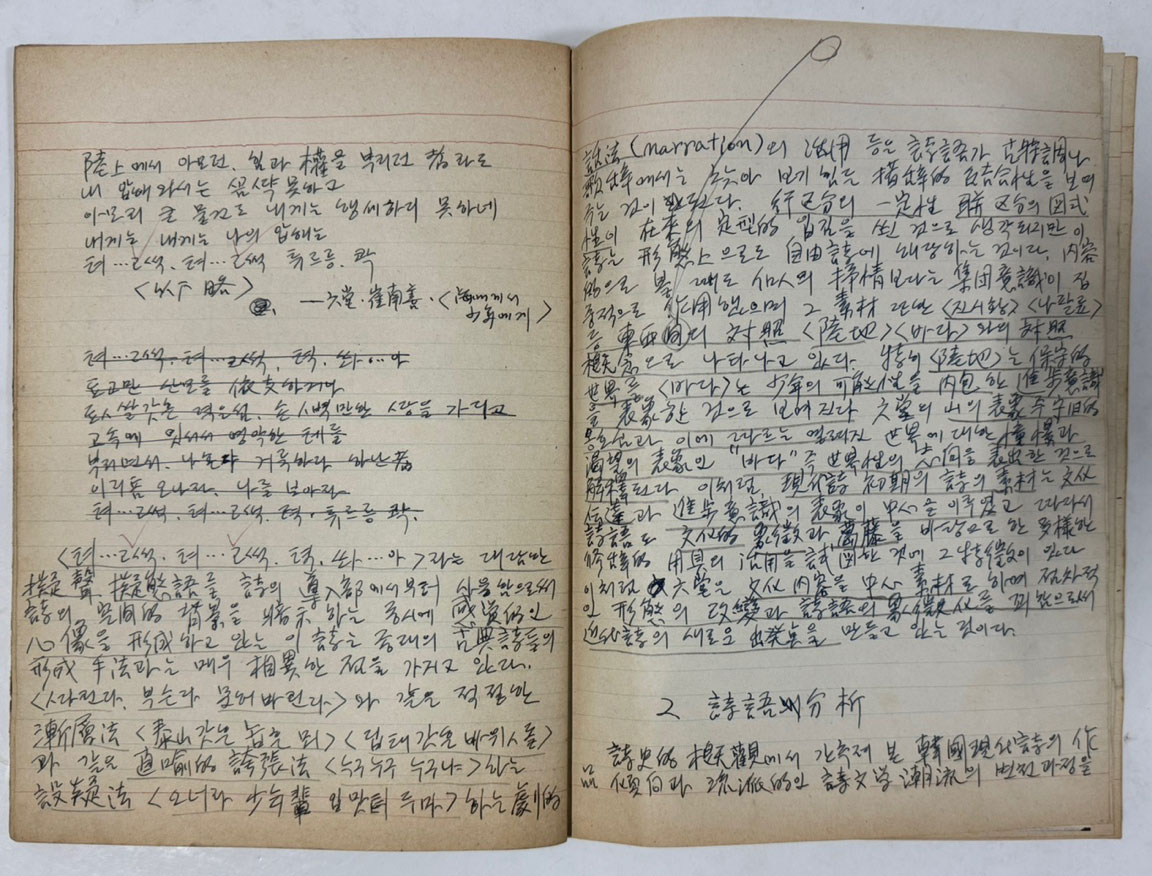 陸上에서 아모런, 힘과 權을 부리던 者라도
내 압헤 와서는 꼼짝 못하고
아모리 큰 물건도 내게는 행세하디 못하네
내게는 내게는 나의 압헤는
텨…ㄹ썩, 텨…ㄹ썩 튜르릉, 콱
<以下略>
—六堂·崔南善·<海에게서 少年에게>
텨…ㄹ썩, 텨…ㄹ썩, 텩, 쏴…아
됴고만 산모를 依支하거나
됴ㅅ쌀갓흔 뎍은섬, 손ㅅ벽만한 땅을 가디고
고속에 잇서서 영악한 톄를
부리면서, 나 혼댜 거룩하다 하난 者
이리좀 오나라, 나를 보아라
텨…ㄹ썩, 텨…ㄹ썩, 텩, 튜르릉 콱,
<텨…ㄹ썩, 텨…ㄹ썩, 텩, 쏴…아>라는 대담한
擬聲, 擬態語를 詩의 導入部에서부터 사용함으로써
詩의 空間的 背景을 暗示하는 동시에 感覺的인
心像을 形成하고 있는 이 詩는 종래의 古典詩들의
形成 手法과는 매우 相異한 점을 가지고 있다.
<따린다, 부슨다, 문허바린다>와 같은 적절한
漸層法 <泰山갓흔 놉흔 뫼> <딥태갓흔 바위ㅅ돌>
과 같은 直喩的 誇張法 <누구누구 누구냐> 하는
設疑法 <오너라 少年輩 입맛텨 듀마> 하는 劇的
說法(narration)의 活用 등은 詩語가 古時調나
歌辭에서는 찾아 보기 힘든 構造的 結合性을 보여
주는 것이 된다. 行 区分의 一定性 聯 区分의 図式
性이 在來의 定型的 입김을 쐰 것으로 생각되지만 이
詩는 形態上으로도 自由詩에 해당하는 것이다. 内容
的으로 볼 때도 個人의 抒情보다는 集団意識이 집
중적으로 作用했으며 그 素材 또한 <진시황> <나팔륜>
등 東西国의 対照 <陸地> <바다>와의 対照
概念으로 나타나고 있다. 特히 <陸地>는 保守的
世界를 <바다>는 少年의 可能性을 内包한 進歩意識
을 表象한 것으로 보여진다 六堂의 山의 表象 즉 守旧的
이에 따르는 열려진 世界에 대한 憧憬과
渴望의 表象인 "바다" 즉 世界性의 志向을 表出한 것으로
解釋된다. 이처럼, 現代詩 初期의 詩의 素材는 文化
과 進歩意識의 表象이 中心을 이루었고 따라서
詩語도 文化的 象徵과 葛藤을 바탕으로 한 多樣한
修辭的 用具의 活用을 試図한 것에 그 特徵이 있다
이처럼 六堂은 文化 内容을 中心 素材로 하여 점차적
인 形態의 改變과 詩語의 象徵化를 꾀함으로써
近代詩의 새로운 出発点을 만들고 있는 것이다.
2 詩語의 分析
詩史的 概觀에서 간추려 본 韓國現代詩의 作
品 傾向과 流派的인 詩文学 潮流의 변천과정을